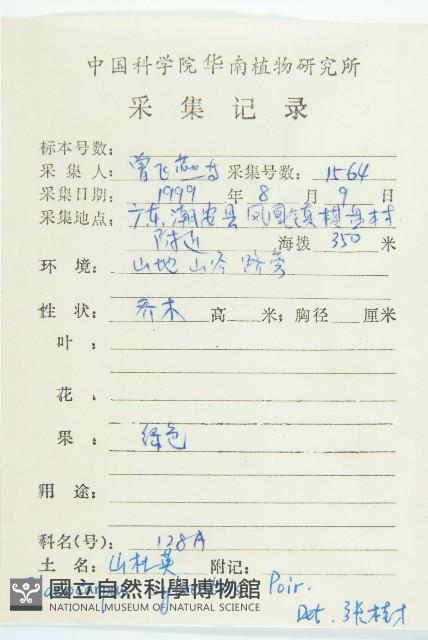 中国科学院华南植物研究所
采集记录
标本号数:
采集人: 曾飞燕 采集号数: 1564
采集日期: 1999 年 8 月 9 日
采集地点: 广东潮安县凤凰镇棋盘村
附近 海拨 350 米
环境: 山地 山谷 路旁
性状: 乔木 高 米; 胸径 厘米
叶:
花:
果: 绿色
用途:
科名(号): 128A
土名: 山杜英 附记:
Poir.
國立自然科學博物館
NATIONAL MUSEUM OF NATURAL SCIENCE
Det. 张桂才